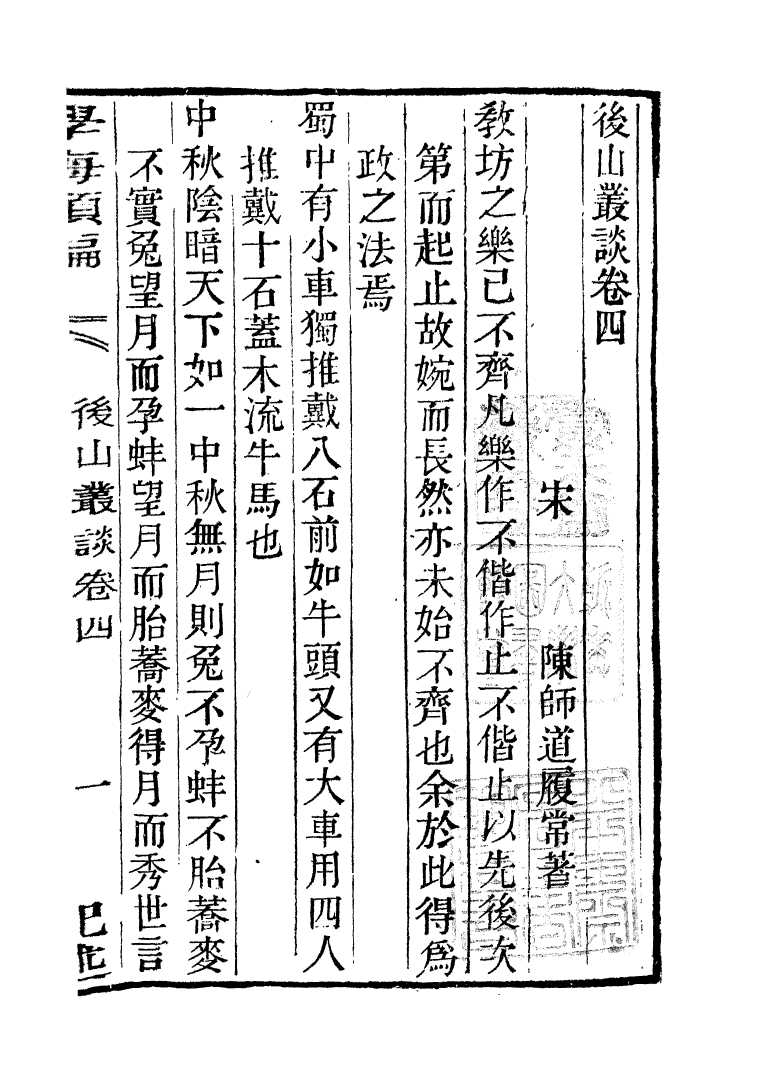 後山叢談卷四
宋 陳師道履常著
教坊之樂已不齊凡樂作不偕作止不偕止以先後次
第而起止故婉而長然亦未始不齊也余於此得爲
政之法焉
蜀中有小車獨推戴八石前如牛頭又有大車用四人
推戴十石蓋木流牛馬也
中秋陰暗天下如一中秋無月則兔不孕蚌不胎蕎麥
不實兔望月而孕蚌望月而胎蕎麥得月而秀世言
學海類編 後山叢談卷四 一